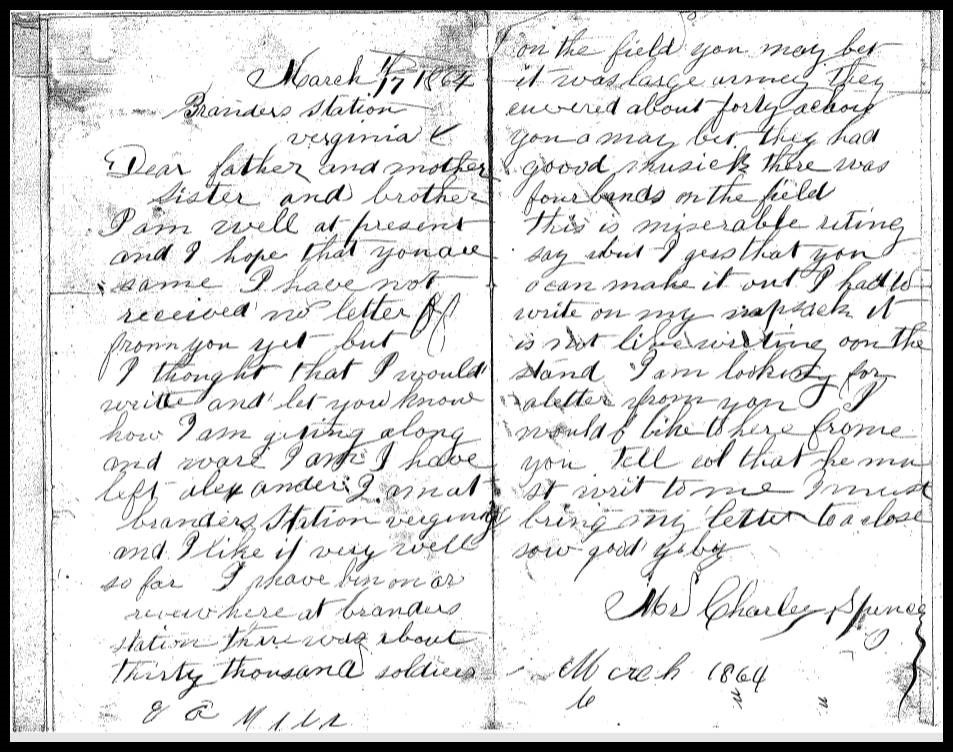 March 17 1864
Branders station
verginia
Dear father and mother
sister and brother
I am well at present
and I hope that you are
same I have not
received no letter
fromn you yet but
I thought that I would
write and let you know
how I am giting along
and ware I am I have
left alexander I am at
branders Station verginia
and I like it very well
so far I have bin on ar
revew here at branders
station there was about
thirty thousand soldiers
on the field you may bet
it was large armey they
cuvered about forty
you a may bet they had
goovd musick there was
four bands on the field
this is miserable riting
say but I gess that you
can make it out I had to
write on my napsack it
is not like writing oon the
stand I am looking for
a letter from you I
would like to here frome
you tell that he mu
st writ to me I must
bring my letter to a close
sow good by
Mr Charley Spence
March 1864